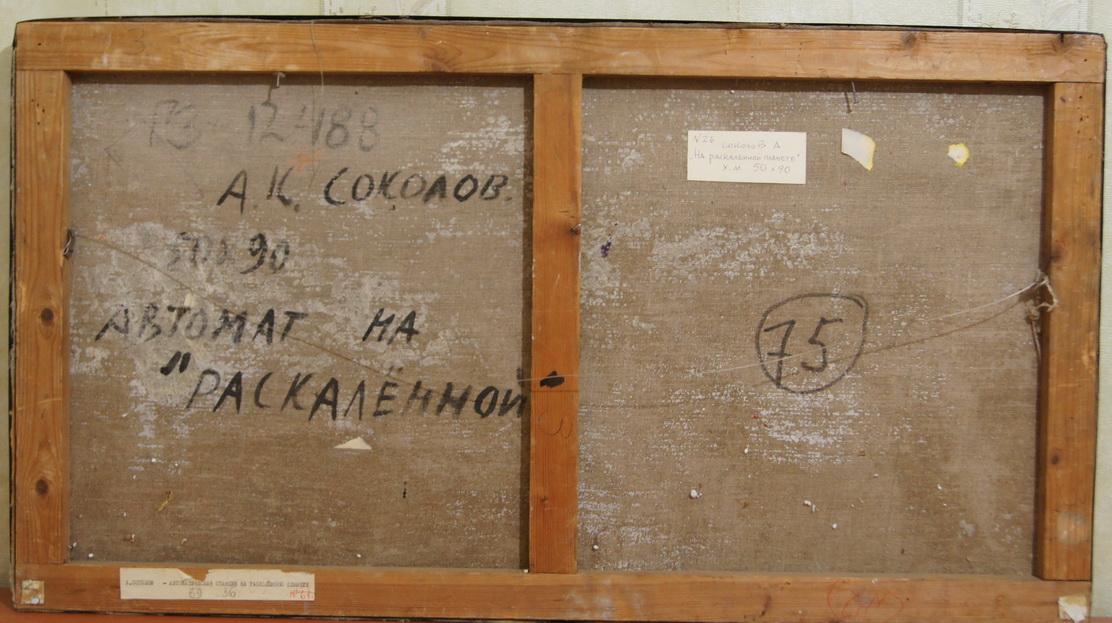 12488
А.К. СОКОЛОВ.
50х90
АВТОМАТ НА
"РАСКАЛЁННОЙ
№26
СОКОЛОВ А
"На раскаленной планете"
х.м. 50 х 90
75
- АВТОМАТИЧЕСКАЯ СТАНЦИЯ НА РАСКАЛЕННОЙ ПЛАНЕТЕ
69 36